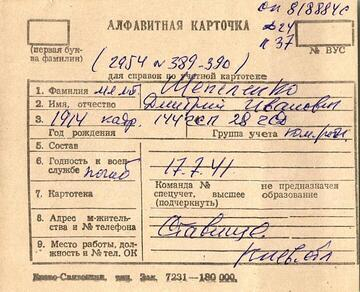 оп 818884с
АЛФАВИТНАЯ КАРТОЧКА
д 24
п 37
(первая бук-
ва фамилии)
№ ВУС
(2954 № 389-390)
для справок по учетной картотеке
1. Фамилия мл. лт.
2. Имя, отчество Дмитрий Иванович
3. 1914 кадр. 144 сп 28 сд
Год рождения Группа учета ком. роты
5. Состав
6. Годность к воен.
службе погиб 17.7.41
7. Картотека
Команда № не предназначен
спецучет, высшее образование
(подчеркнуть)
8. Адрес м-житель-
ства и № телефона Ставище
9. Место работы, долж-
ность и № тел. ОК Киев. обл
тип. Зак. 7231—180 000.